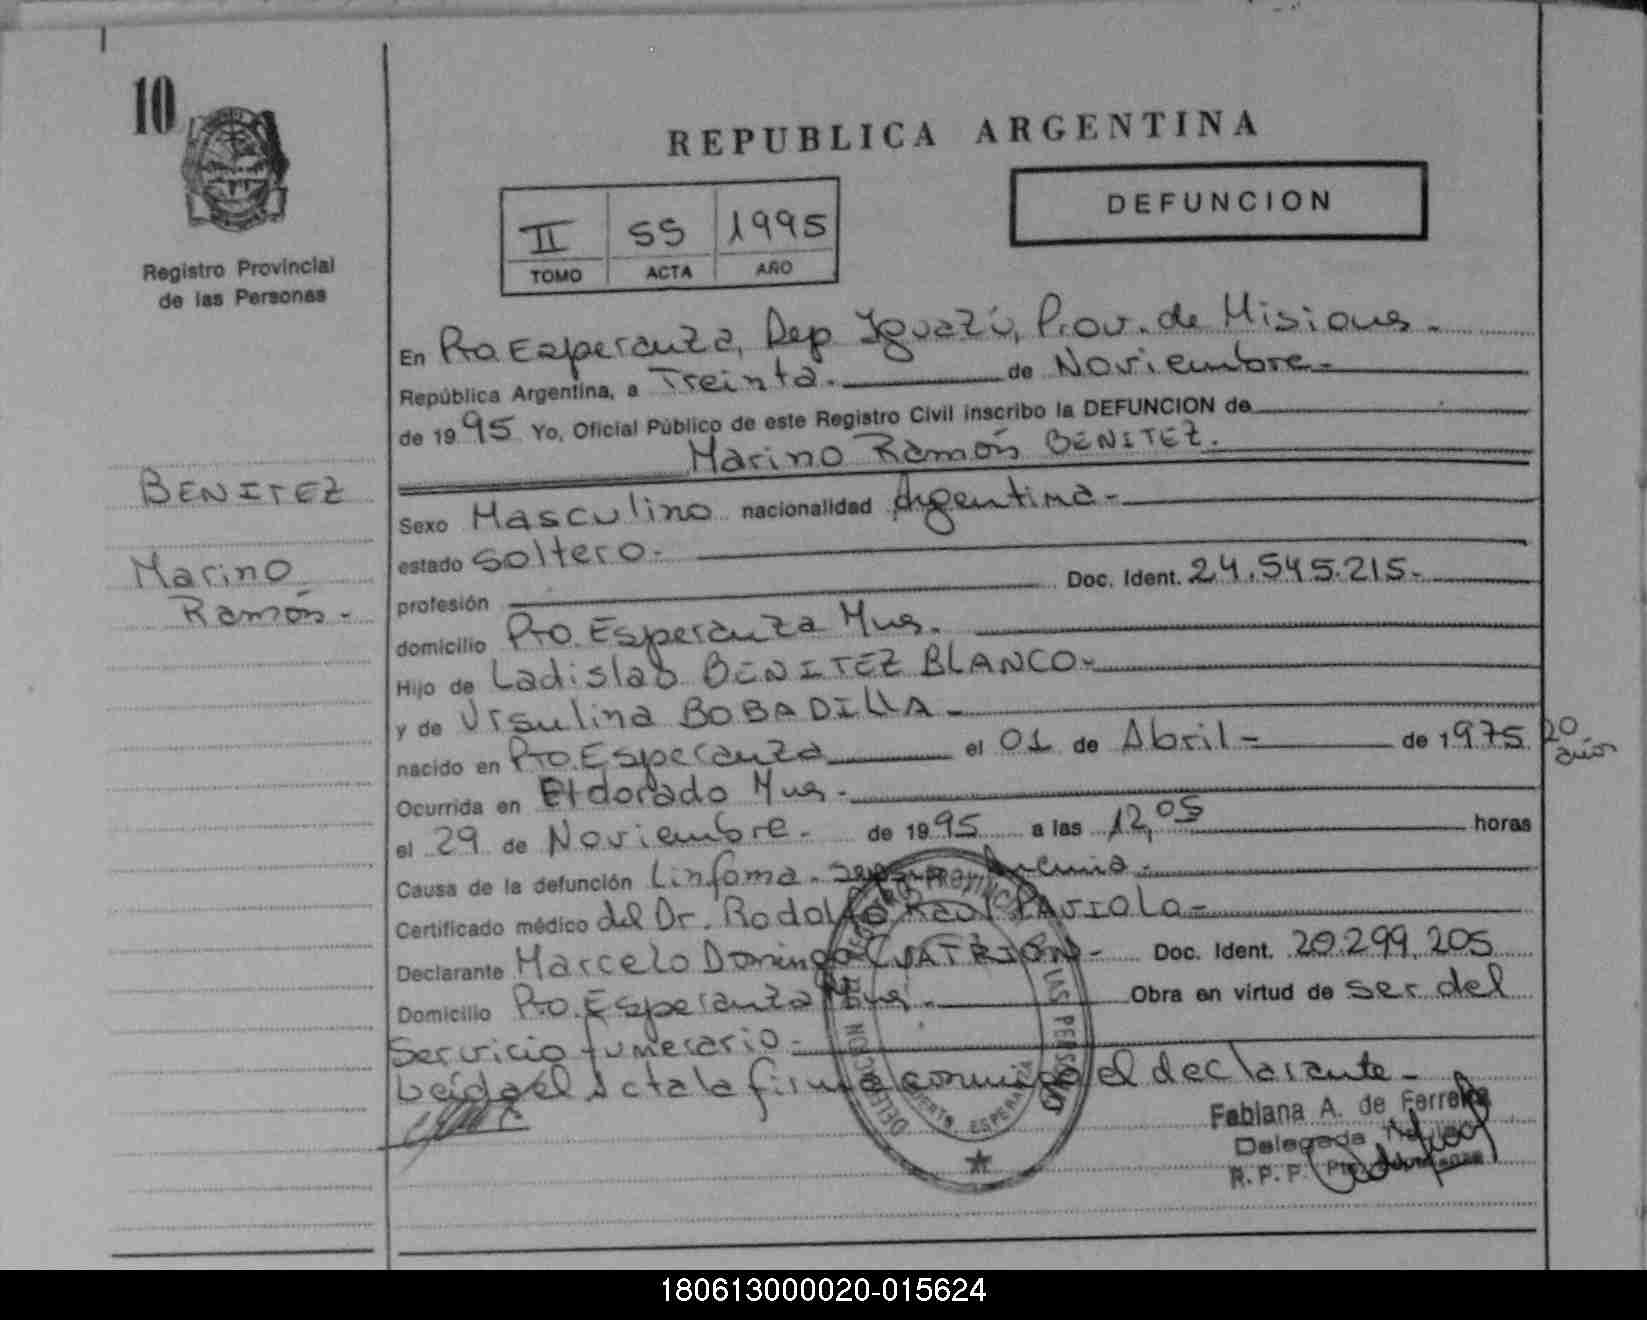 10
REPUBLICA ARGENTINA
DEFUNCION
II SS 1995
TOMO ACTA AÑO
Registro Provincial
de las Personas
En Pto. Esperanza, Dep Iguazú, Prov. de Misiones.
República Argentina, a Treinta. de Noviembre.
de 1995 Yo, Oficial Público de este Registro Civil inscribo la DEFUNCION de
Marino Ramón BENITEZ.
BENITEZ
Marino
Ramón.-
Sexo Masculino nacionalidad Argentina-
estado soltero.-
profesión Doc. Ident. 24.545.215-
domicilio Pto. Esperanza Mnes.
Hijo de Ladislao BENITEZ BLANCO-
y de Ursulina BOBADILLA-
nacido en Pto. Esperanza el 01 de Abril- de 1975 20
años
Ocurrida en Eldorado Mnes.
el 29 de Noviembre. de 1995 a las 12,05 horas
Causa de la defunción Linfoma. Anemia.-
Certificado médico del Dr. Rodolfo Raúl
Declarante Marcelo Domingo Doc. Ident. 20.299.205
Domicilio Pto. Esperanza Mnes. Obra en virtud de ser del
Servicio funerario.-
Leída el Acta la firma conmigo el declarante-
DELEGACION REGISTRO PROVINCIAL DE LAS PERSONAS
PUERTO ESPERANZA
Fabiana A. de Ferreira
Delegada Titular
R. P. P. Pto. Esperanza
180613000020-015624